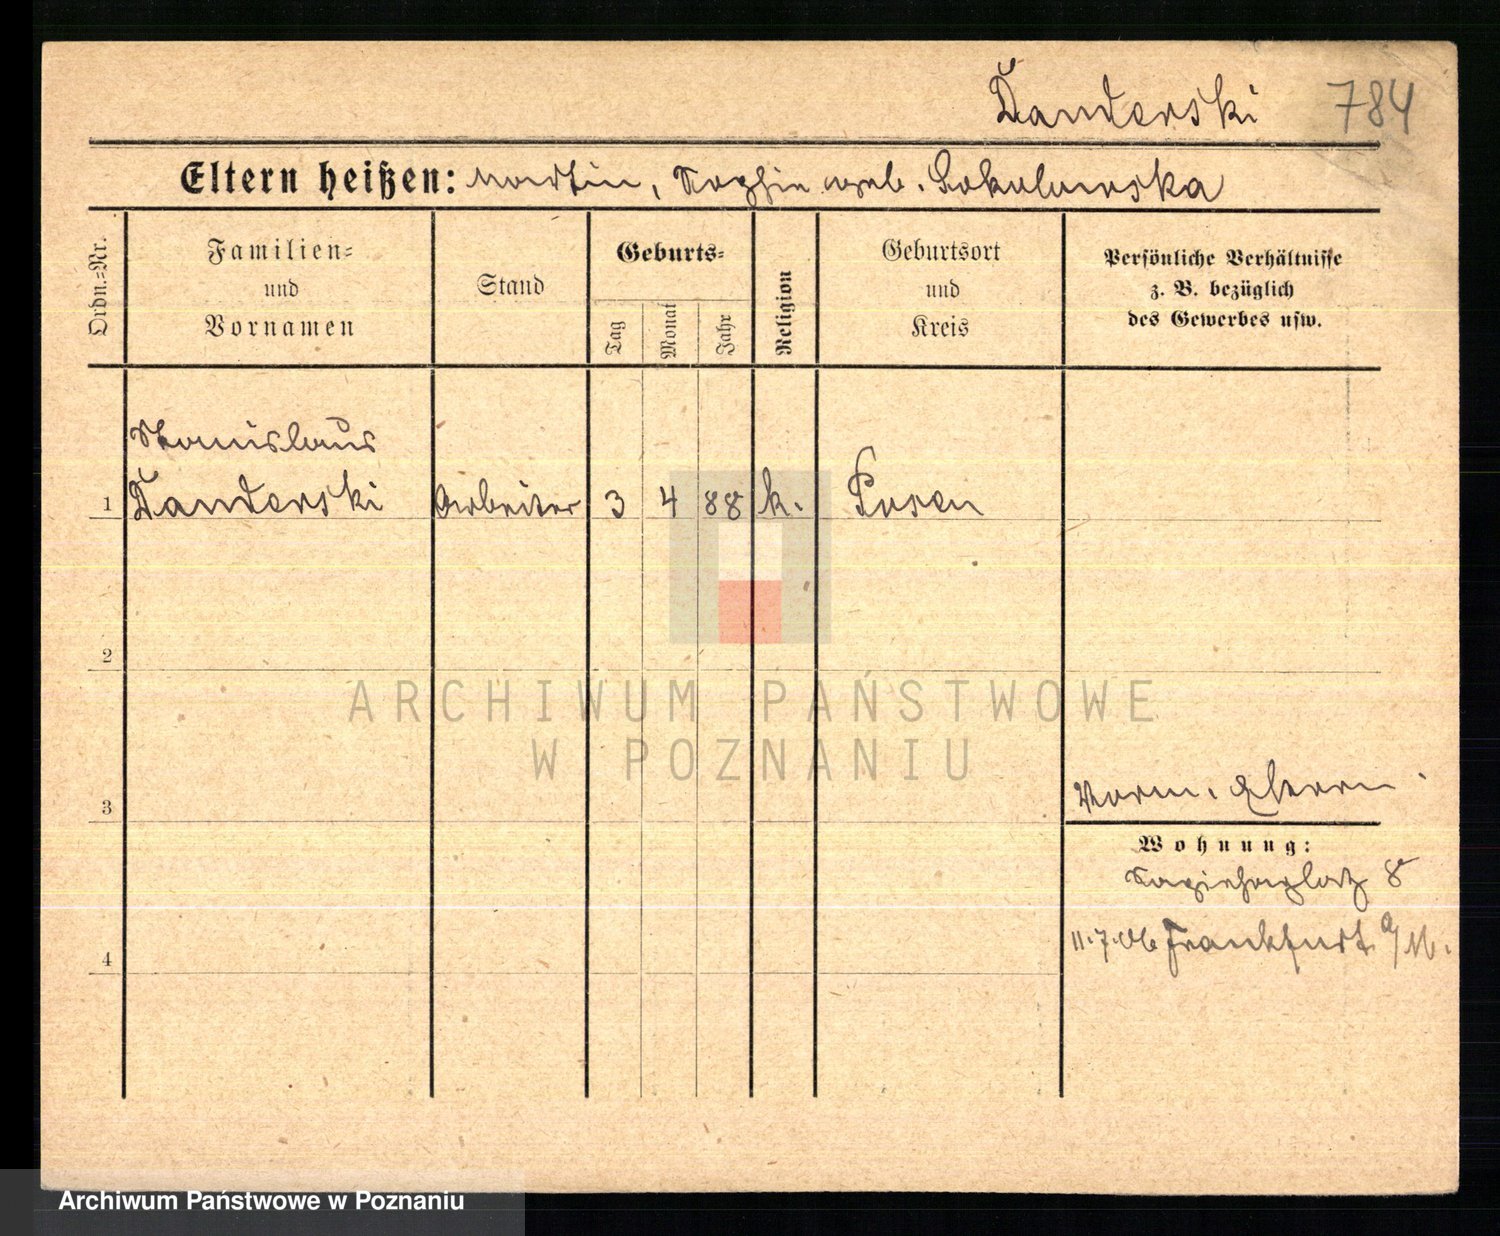 Danderski 784
Eltern heißen: Martin, Sophie geb. Sokolowska
Ordn.=Nr.
Familien=
und
Vornamen
Stand
Geburts=
Tag
Monat
Jahr
Religion
Geburtsort
und
Kreis
Persönliche Verhältnisse
z. B. bezüglich
des Gewerbes usw.
Stanislaus
1 Danderski Arbeiter 3 4 88 k. Posen
2
ARCHIWUM PAŃSTWOWE
W POZNANIU
3
Wohnung:
Sapiehaplatz 8
11.7.06 Frankfurt a/M.
4
Archiwum Państwowe w Poznaniu